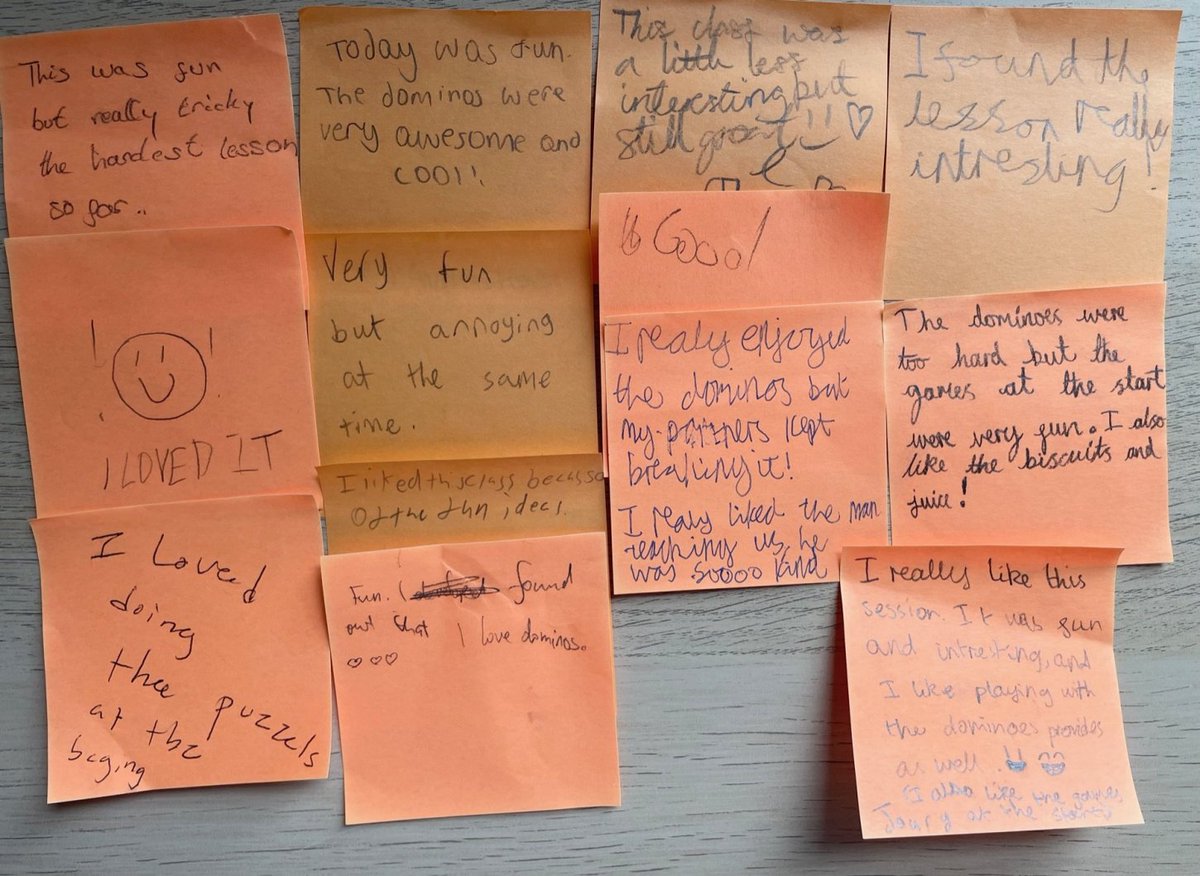 This was fun
but really tricky
the hardest lesson
so far..
! !
I LOVED IT
I Loved
doing
thee puzzels
at the
beging
Today was fun.
The dominos were
very awesome and
cool!.
Very fun
but annoying
at the same
time.
I liked th class because
of the fun ideas.
Fun. I found
out that I love dominos.
♡♡♡
This class was
a little less
interesting but
still great!! ♡
Good
I realy enjoyed
the dominos but
my partners kept
breaking it!
I realy liked the man
teaching us, he
was soooo kind
I found the
lesson really
intresting!
The dominoes were
too hard but the
games at the start
were very fun. I also
like the biscuits and
juice!
I really like this
session. It was fun
and intresting, and
I like playing with
the dominoes provides
as well.
I also like the games
at the start